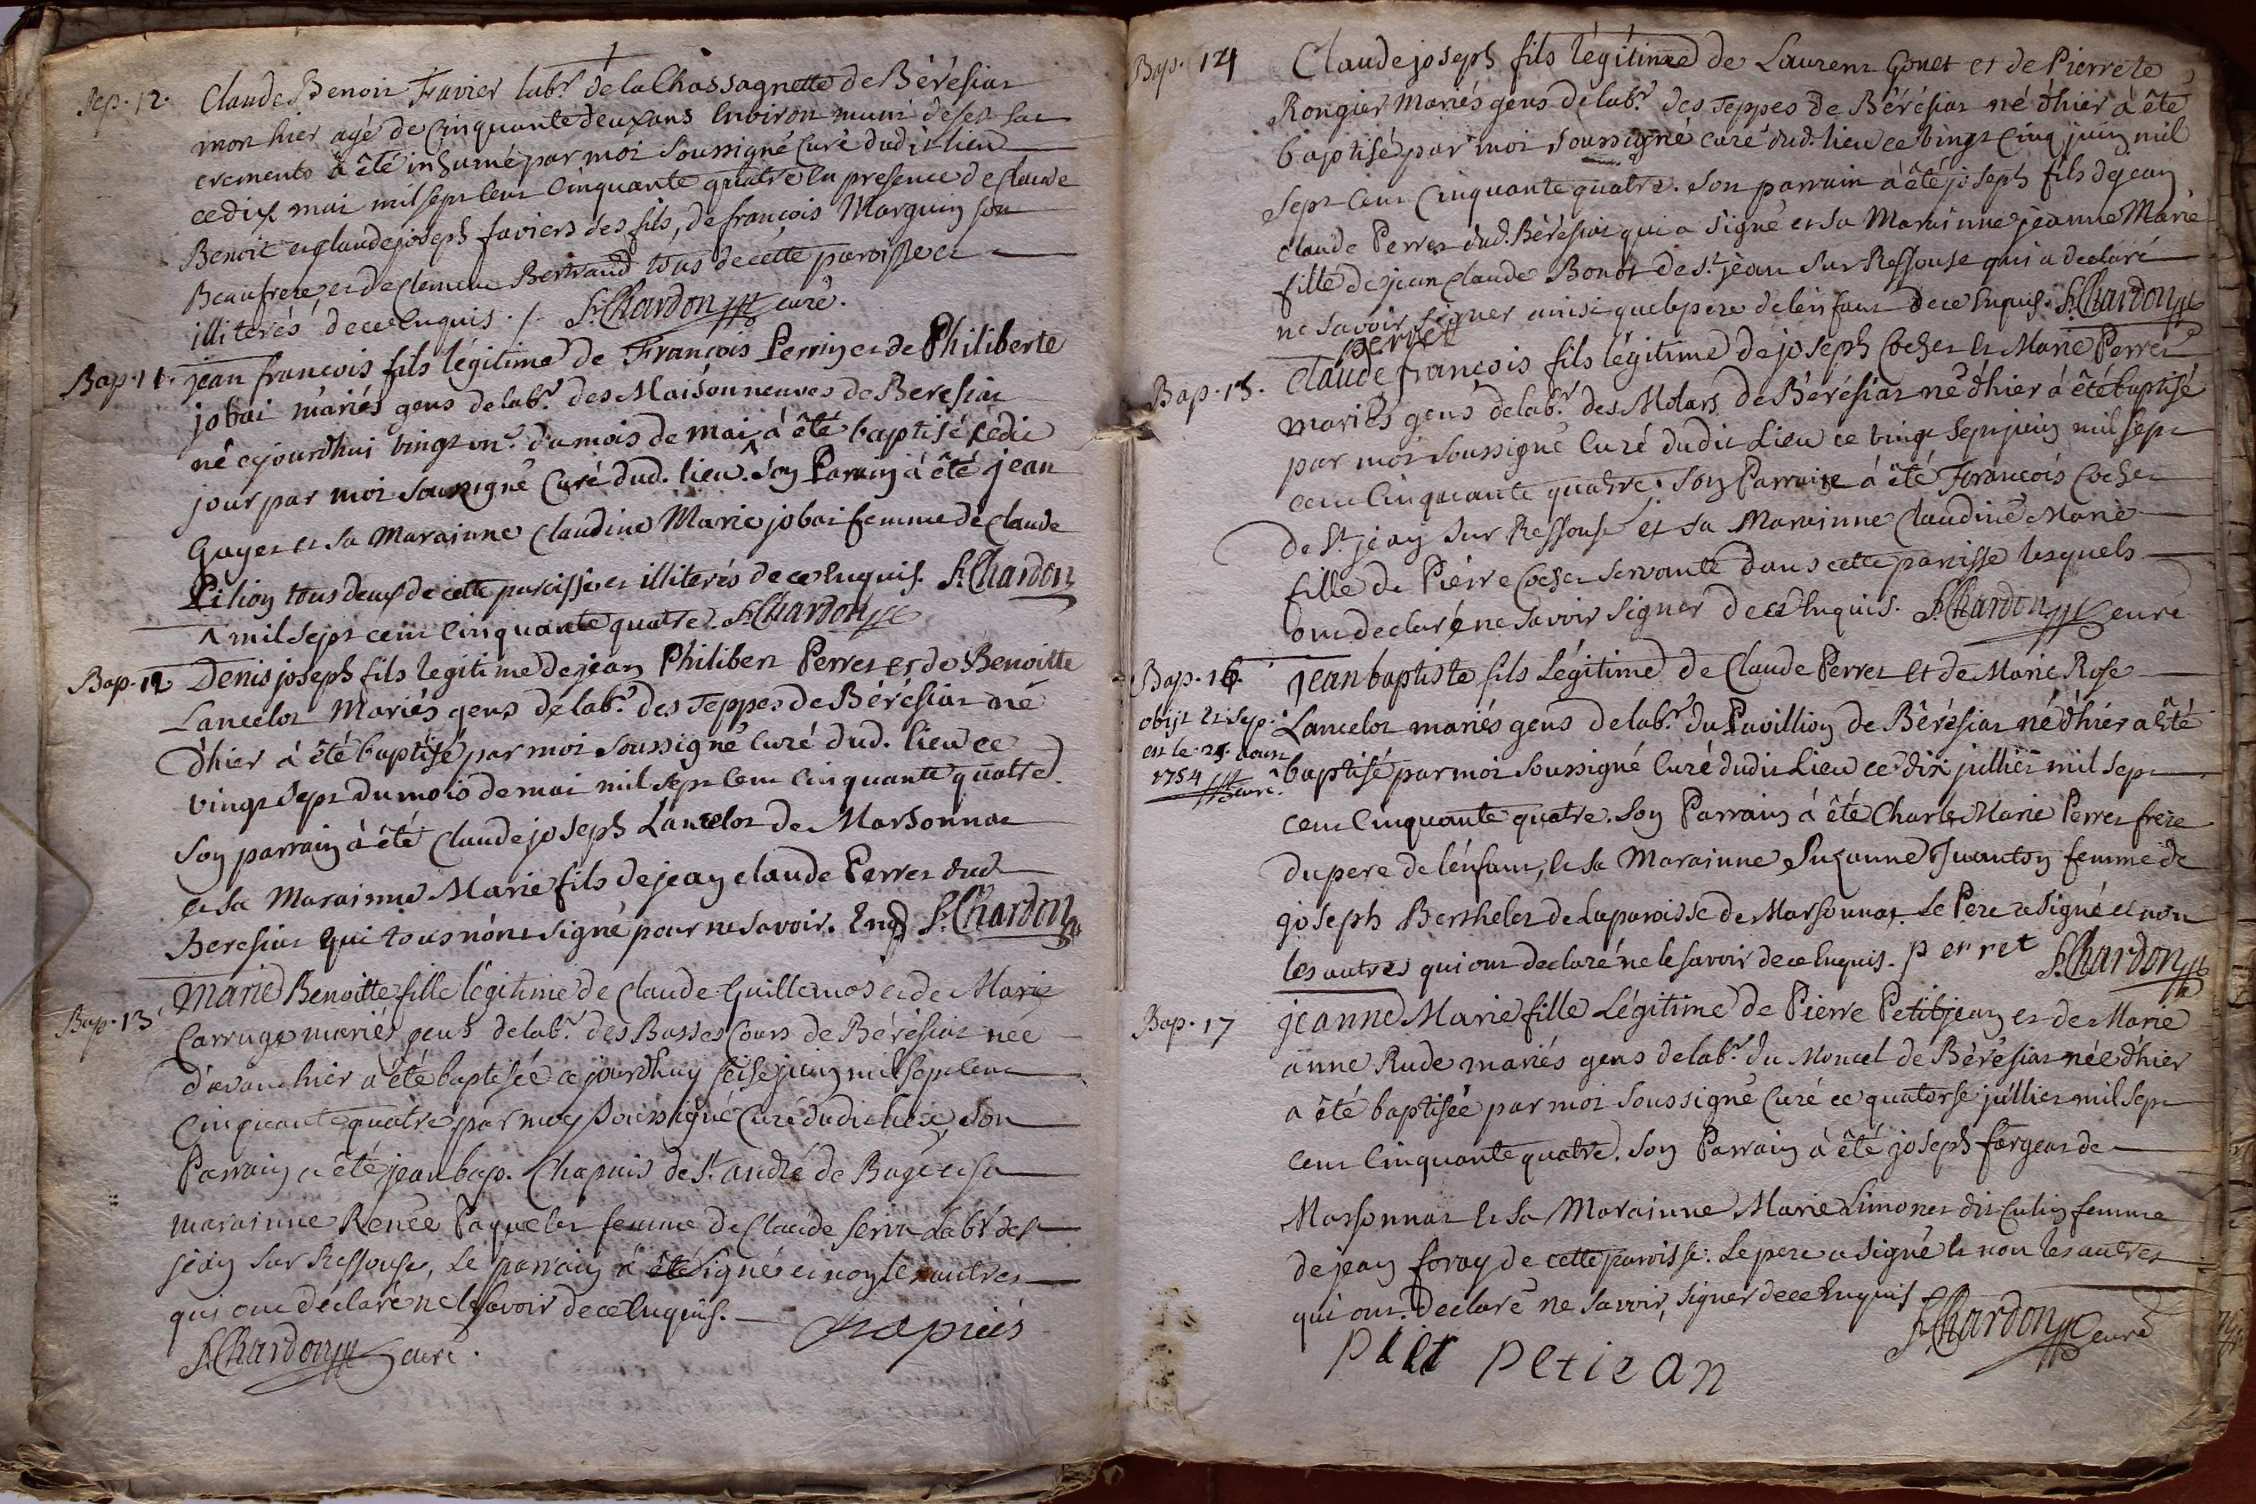 Sep. 12. Claude Benoit Favier lab.r de la Chassagnette de Béréziat
mort hier agé de Cinquante deux ans Environ muni de ses sa-
crements à été inhumé par moi Soussigné Curé dudit lieu
ce dix mai mil sept cent Cinquante quatre En presence de Claude
Benoit et Claude joseph faviers ses fils, de françois Marguin son
Beaufrere, et de Clement Bertrand tous de cette paroisse et
illiterés de ce Enquis ./. F. Chardon curé.
Bap. 11. jean francois fils légitime de François Perrin et de Philiberte
jobai mariés gens de lab.r des Maisonneuves de Beresiat
né cejourdhui vingt un.e du mois de mai à été baptisé cedit
jour par moi Soussigné Curé dud. lieu. ^ Son Parrain à été jean
Guyet et sa Marainne Claudine Marie jobai femme de Claude
Pilion tous deux de cette paroisse et illiterés de ce Enquis. F. Chardon
^ mil sept cent Cinquante quatre. F. Chardon
Bap. 12 Denis joseph fils legitime de jean Philibert Perret et de Benoitte
Lancelot Mariés gens de lab.r des Teppes de Béréziat né
d'hier à été baptisé par moi Soussigné Curé dud. lieu ce
vingt sept du mois de mai mil sept Cent Cinquante quatre
Son parrain à été Claude joseph Lancelot de Marsonnat
et sa Marainne Marie fils de jean claude Perret dud
Beresiat qui tous n'ont signé pour ne savoir. Enq F. Chardon
Bap. 13 Marie Benoitte fille légitime de Claude Guillemot et de Marie
Carruge mariés gens de lab.r des Basses Cours de Béréziat née
d'avant hier a été baptisée ce jourdhuy seise juin mil sept cent
Cinquante quatre par moy Soussigné Curé dudit lieu, son
Parrain a été jean bap. Chapuis de St. andré de Bagé et sa
marainne Renée Paquelet femme de Claude Servu Labr de St
jean Sur Ressouse, Le parrain à été Signé et non les autres
qui ont déclaré ne le Savoir de ce Enquis.
F. Chardon curé. chapuis
Bap. 14 Claude joseph fils légitime de Laurent Gonet et de Pierrete
Rongier Mariés gens de lab.r des Teppes de Béréziat né d'hier à été
baptisé par moi Soussigné curé dud. lieu ce vingt Cinq juin mil
Sept Cent Cinquante quatre. Son parrain à été joseph fils de jean
claude Perret dud. Béréziat qui a signé et sa Marainne jeanne Marie
fille de jean Claude Bonot de St. jean Sur Ressouse qui a declaré
ne savoir signer ainsi que le pere de l'enfant de ce Enquis. F. Chardon
perret
Bap. 15. Claude françois fils légitime de joseph Cochet et Marie Perret
mariés gens de lab.r des Molars de Béréziat né d'hier à été baptisé
par moi Soussigné Curé dudit Lieu ce vingt Sept juin mil Sept
cent Cinquante quatre. Son Parrain à été Francois Cochet
de St. jean Sur Ressouse et sa Marainne Claudine Marie
fille de Pierre Cochet servante dans cette paroisse lesquels
ont declaré ne savoir signer de ce Enquis. F. Chardon curé
Bap. 16 jean baptiste fils Légitime de Claude Perret et de Marie Rose
obijt et sep.
est le 28 aoust
1754
curé.
Lancelot mariés gens de lab.r du Pavillion de Béréziat né d'hier a été
baptisé par moi Soussigné Curé dudit Lieu ce dix jullier mil Sept
Cent Cinquante quatre. Son Parrain à été Charle Marie Perret frere
du pere de l'énfant, et sa Marainne Suzanne Juanton femme de
joseph Berthelet de La paroisse de Marsonnat. Le Pere a signé et non
les autres qui ont declaré ne le savoir de ce Enquis. perret F. Chardon
Bap. 17 jeanne Marie fille Légitime de Pierre Petitjean et de Marie
anne Rude mariés gens de lab.r du Moncel de Béréziat née d'hier
a été baptisée par moi Soussigné Curé ce quatorse jullier mil Sept
Cent Cinquante quatre. Son Parrain à été joseph fargeat de
Marsonnat et Sa Marainne Marie Limonet dit Culin femme
de jean foray de cette paroisse. Le pere a signé et non les autres
qui ont declaré ne savoir signer de ce Enquis. F. Chardon curé
petiean